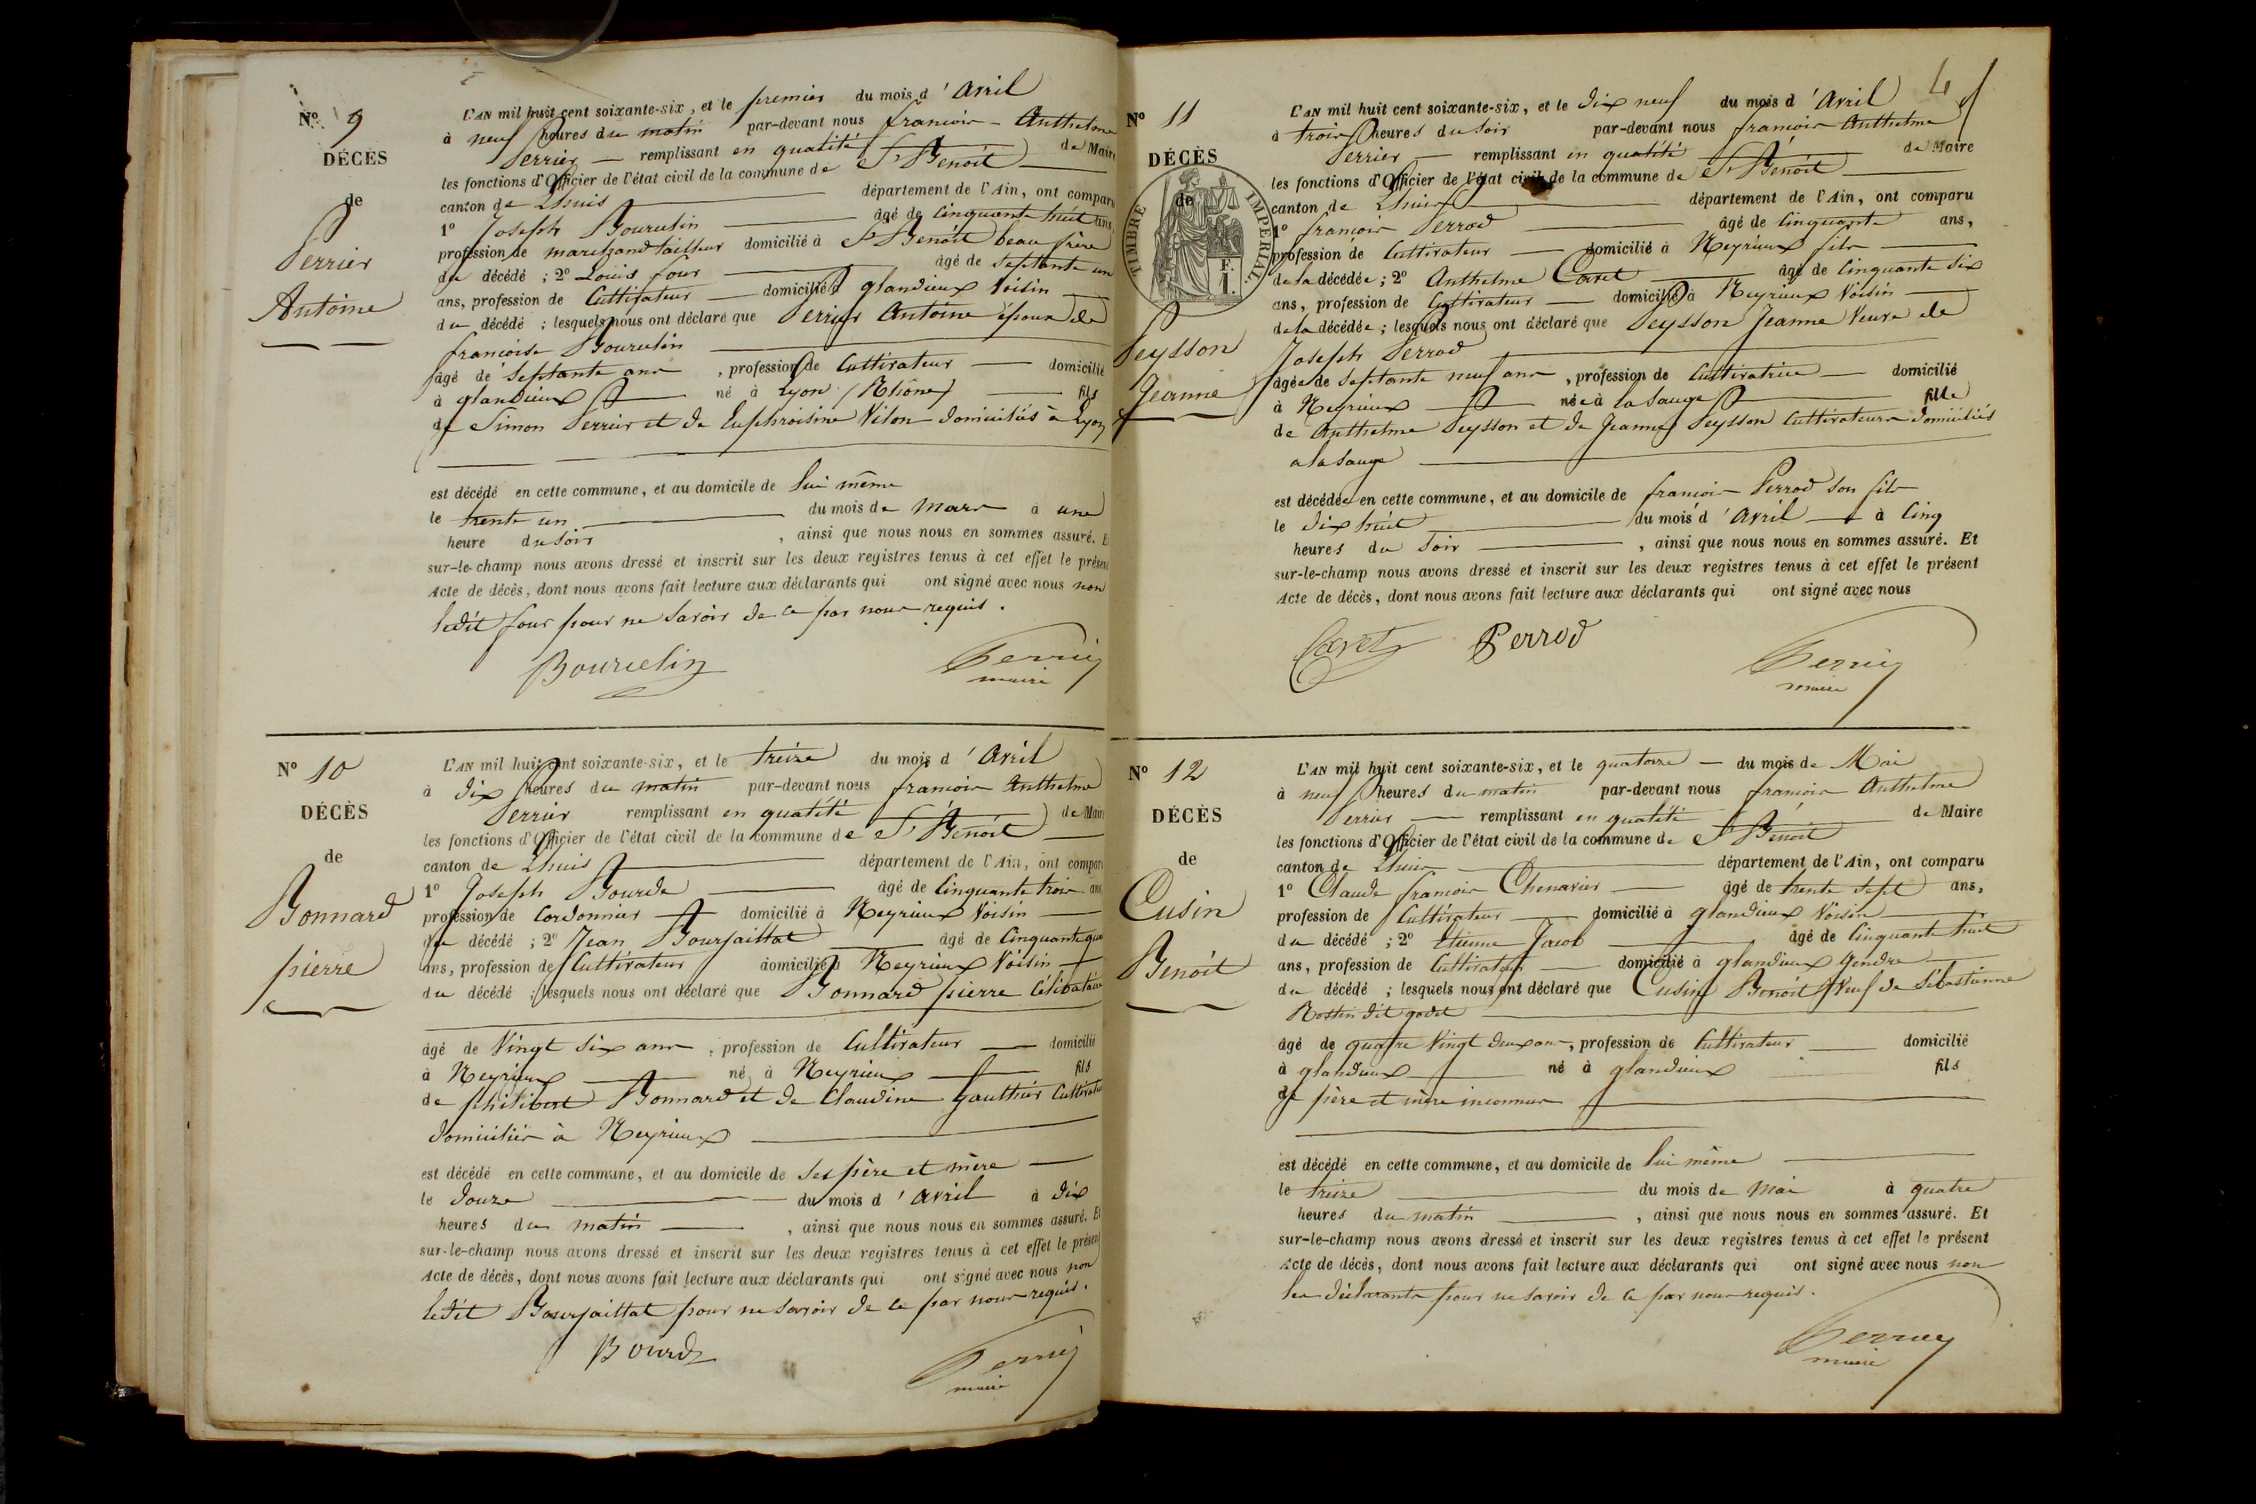 Nº 9
DÉCÈS
de
Perrier
Antoine
L'AN mil huit cent soixante-six, et le premier du mois d'Avril
à neuf heures du matin par-devant nous françois Anthelme
Perrier remplissant en qualité de Maire
les fonctions d'Officier de l'état civil de la commune de St Benoit
canton de Lhuis département de l'Ain, ont comparu
1º Joseph Bourcelin âgé de cinquante huit ans,
profession de marchand tailleur domicilié à St Benoit beau frère
du décédé ; 2º Louis four âgé de septante un
ans, profession de Cultivateur domicilié à glandieux Voisin
du décédé ; lesquels nous ont déclaré que Perrier Antoine époux de
françoise Bourcelin
âgé de septante ans, profession de Cultivateur domicilié
à glandieux né à Lyon (Rhône) fils
de Simon Perrier et de Euphroisine Vilon domiciliés à Lyon
est décédé en cette commune, et au domicile de lui même
le trente un du mois de mars à une
heure du soir, ainsi que nous nous en sommes assuré. Et
sur-le-champ nous avons dressé et inscrit sur les deux registres tenus à cet effet le présent
Acte de décès, dont nous avons fait lecture aux déclarants qui ont signé avec nous non
ledit four pour ne savoir de ce par nous requis.
Bourcelin Perrier
maire
Nº 10
DÉCÈS
de
Bonnard
pierre
L'AN mil huit cent soixante-six, et le treize du mois d'Avril
à dix heures du matin par-devant nous françois Anthelme
Perrier remplissant en qualité de Maire
les fonctions d'Officier de l'état civil de la commune de St Benoit
canton de Lhuis département de l'Ain, ont comparu
1º Joseph Bourde âgé de cinquante trois ans
profession de Cordonnier domicilié à Neyrieux Voisin
du décédé ; 2º Jean Bourjaillat âgé de Cinquante qua
ans, profession de Cultivateur domicilié à Neyrieux Voisin
du décédé ; lesquels nous ont déclaré que Bonnard pierre Célibataire
âgé de Vingt six ans, profession de Cultivateur domicilié
à Neyrieux né à Neyrieux fils
de philibert Bonnard et de Claudine Gauthier Cultivateurs
domiciliés à Neyrieux
est décédé en cette commune, et au domicile de ses père et mère
le douze du mois d'avril à dix
heures du matin, ainsi que nous nous en sommes assuré. Et
sur-le-champ nous avons dressé et inscrit sur les deux registres tenus à cet effet le présent
Acte de décès, dont nous avons fait lecture aux déclarants qui ont signé avec nous non
ledit Bourjaillat pour ne savoir de ce par nous requis.
Bourde Perrier
maire
4
Nº 11
DÉCÈS
de
TIMBRE IMPERIAL
F.
1.
Peysson
Jeanne
L'AN mil huit cent soixante-six, et le dix neuf du mois d'Avril
à trois heures du soir par-devant nous françois Anthelme
Perrier remplissant en qualité de Maire
les fonctions d'Officier de l'état civil de la commune de St Benoit
canton de Lhuis département de l'Ain, ont comparu
1º françois Perrod âgé de Cinquante ans,
profession de Cultivateur domicilié à Neyrieux fils
de la décédée ; 2º Anthelme Cavet âgé de Cinquante six
ans, profession de Cultivateur domicilié à Neyrieux Voisin
de la décédée ; lesquels nous ont déclaré que Peysson Jeanne Veuve de
Joseph Perrod
âgée de septante neuf ans, profession de Cultivatrice domicilié
à Neyrieux née à la Sauge fille
de Anthelme Peysson et de Jeanne Peysson Cultivateurs domiciliés
a la Sauge
est décédée en cette commune, et au domicile de françois Perrod son fils
le dix huit du mois d'Avril à Cinq
heures du Soir, ainsi que nous nous en sommes assuré. Et
sur-le-champ nous avons dressé et inscrit sur les deux registres tenus à cet effet le présent
Acte de décès, dont nous avons fait lecture aux déclarants qui ont signé avec nous
Cavet Perrod Perrier
maire
Nº 12
DÉCÈS
de
Cusin
Benoit
L'AN mil huit cent soixante-six, et le quatorze du mois de Mai
à neuf heures du matin par-devant nous françois Anthelme
Perrier remplissant en qualité de Maire
les fonctions d'Officier de l'état civil de la commune de St Benoit
canton de Lhuis département de l'Ain, ont comparu
1º Claude françois Chenavier âgé de trente sept ans,
profession de Cultivateur domicilié à glandieux Voisin
du décédé ; 2º Etienne Jacob âgé de Cinquante huit
ans, profession de Cultivateur domicilié à glandieux Gendre
du décédé ; lesquels nous ont déclaré que Cusin Benoit Veuf de Sébastienne
Rostin dit godet
âgé de quatre Vingt deux ans, profession de Cultivateur domicilié
à glandieux né à glandieux fils
de père et mère inconnus
est décédé en cette commune, et au domicile de lui même
le treize du mois de Mai à quatre
heures du matin, ainsi que nous nous en sommes assuré. Et
sur-le-champ nous avons dressé et inscrit sur les deux registres tenus à cet effet le présent
Acte de décès, dont nous avons fait lecture aux déclarants qui ont signé avec nous non
les déclarants pour ne savoir de ce par nous requis.
Perrier
maire